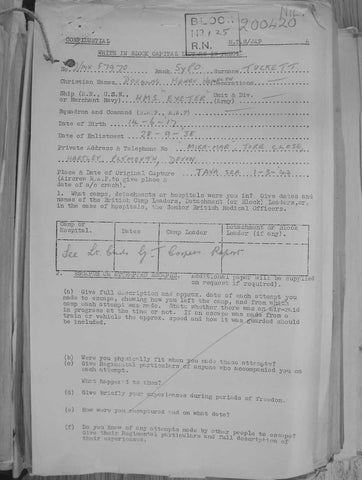 BLOC:
NO; 25
R.N.
200420
NIL.
CONFIDENTIAL
WRITE IN BLOCK CAPITAL LETTERS
No. 57970 Rank SyPO Surname TUCKETT
Christian Names HENRY
Ship (R.N., U.S.N., or Merchant Navy). HMS "EXETER" Unit & Div. (Army)
Squadron and Command
Date of Birth 14-6-17
Date of Enlistment 28-9-38
Private Address & Telephone No MIRA-MAR, TORR CLOSE,
HARTLEY, PLYMOUTH, DEVON
Place & Date of Original Capture JAVA SEA 1-3-42
(Aircrew R.A.F. to give place &
date of a/c crash).
1. What camps, detachments or hospitals were you in? Give dates and
names of the British Camp Leaders, Detachment (or Block) Leaders, or,
in the case of hospitals, the Senior British Medical Officers.
Camp or Hospital. Dates Camp Leader Detachment or Block Leader (if any).
See Lt Cmdr G.T Cooper's Report
2. Additional paper will be supplied
on request if required).
(a) Give full description and approx. date of each attempt you
made to escape, showing how you left the camp, and from which
camp each attempt was made. State whether there was an air-raid
in progress at the time or not. If an escape was made from a
train or vehicle the approx. speed and how it was guarded should
be included.
(b) Were you physically fit when you made these attempts?
(c) Give Regimental particulars of anyone who accompanied you on
each attempt.
What happened to them?
(d) Give briefly your experiences during periods of freedom.
(e) How were you recaptured and on what date?
(f) Do you know of any attempts made by other people to escape?
Give their Regimental particulars and full description of
their experiences.